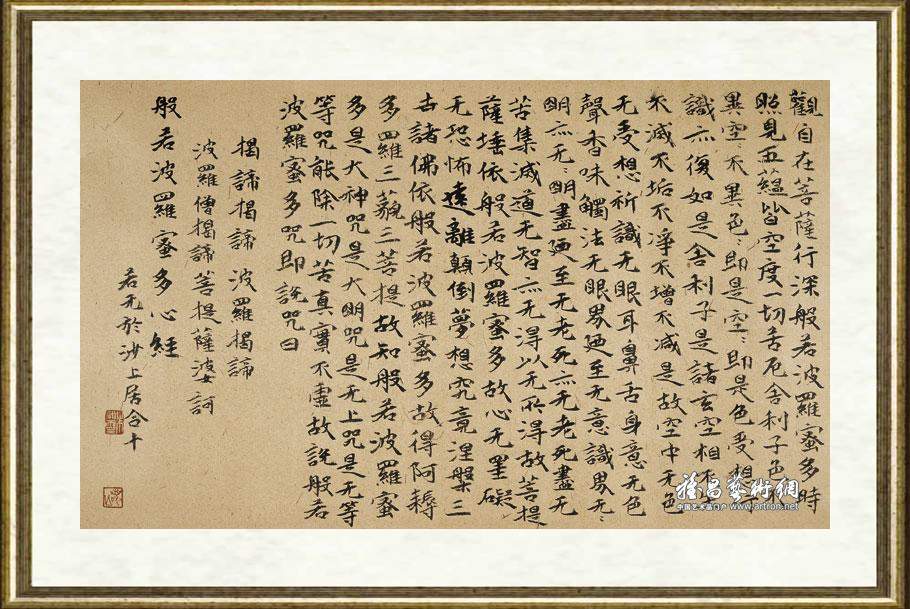 觀自在菩薩行深般若波羅蜜多時
照見五蘊皆空度一切苦厄舍利子色不
異空〻不異色〻即是空〻即是色受想行
識亦復如是舍利子是諸玄空相不
不滅不垢不淨不增不減是故空中无色
无受想行識无眼耳鼻舌身意无色
聲香味觸法无眼界廼至无意識界无〻
明亦无〻明盡廼至无老死亦无老死盡无
苦集滅道无智亦无得以无所得故菩提
薩埵依般若波羅蜜多故心无罣礙
无恐怖遠離顛倒夢想究竟涅槃三
世諸佛依般若波羅蜜多故得阿耨
多羅三藐三菩提故知般若波羅蜜
多是大神咒是大明咒是无上咒是无等
等咒能除一切苦真實不虛故說般若
波羅蜜多咒即說咒曰
揭諦揭諦 波羅揭諦
波羅僧揭諦菩提薩婆訶
般若波羅蜜多心經
若无於沙上居合十
雅昌藝術網
中国艺术品门户 www.artron.net